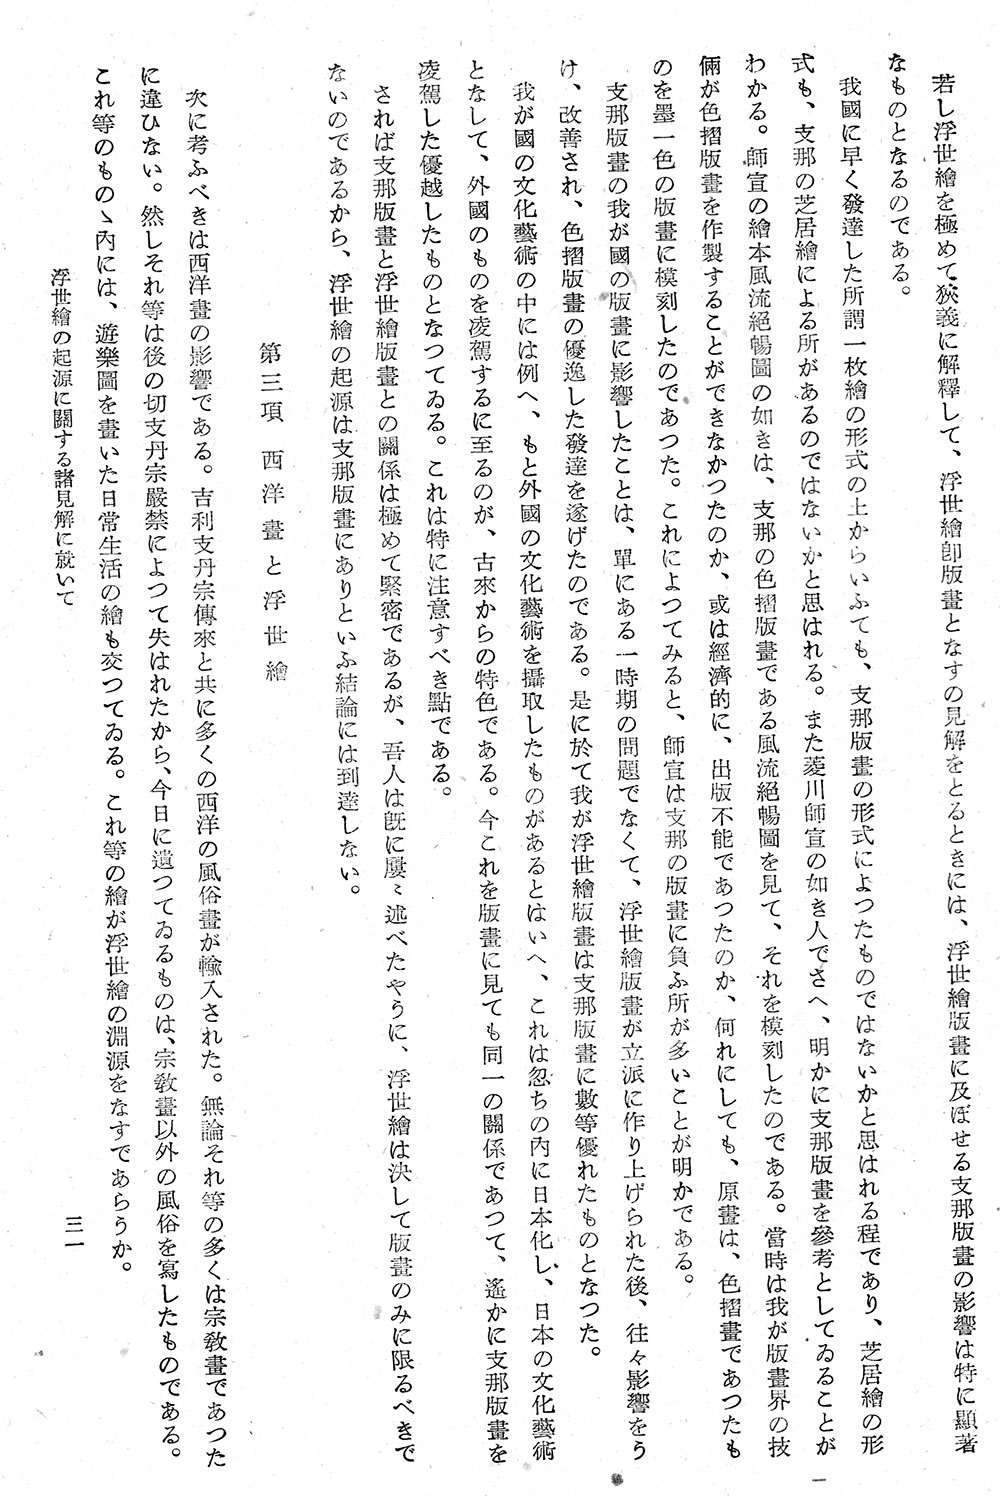 若し浮世繪を極めて狹義に解釋して、浮世繪卽版畫となすの見解をとるときには、浮世繪版畫に及ぼせる支那版畫の影響は特に顯著
なものとなるのである。
我國に早く發達した所謂一枚繪の形式の上からいふても、支那版畫の形式によつたものではないかと思はれる程であり、芝居繪の形
式も、支那の芝居繪による所があるのではないかと思はれる。また菱川師宣の如き人でさへ、明かに支那版畫を參考としてゐることが
わかる。師宣の繪本風流絕暢圖の如きは、支那の色摺版畫である風流絕暢圖を見て、それを模刻したのである。當時は我が版畫界の技
倆が色摺版畫を作製することができなかつたのか、或は經濟的に、出版不能であつたのか、何れにしても、原畫は、色摺畫であつたも
のを墨一色の版畫に模刻したのであつた。これによつてみると、師宣は支那の版畫に負ふ所が多いことが明かである。
支那版畫の我が國の版畫に影響したことは、單にある一時期の問題でなくて、浮世繪版畫が立派に作り上げられた後、往々影響をう
け、改善され、色摺版畫の優逸した發達を遂げたのである。是に於て我が浮世繪版畫は支那版畫に數等優れたものとなつた。
我が國の文化藝術の中には例へ、もと外國の文化藝術を攝取したものがあるとはいへ、これは忽ちの內に日本化し、日本の文化藝術
となして、外國のものを凌駕するに至るのが、古來からの特色である。今これを版畫に見ても同一の關係であつて、遙かに支那版畫を
凌駕した優越したものとなつてゐる。これは特に注意すべき點である。
されば支那版畫と浮世繪版畫との關係は極めて緊密であるが、吾人は旣に屢〻述べたやうに、浮世繪は決して版畫のみに限るべきで
ないのであるから、浮世繪の起源は支那版畫にありといふ結論には到達しない。
第三項 西洋畫と浮世繪
次に考ふべきは西洋畫の影響である。吉利支丹宗傳來と共に多くの西洋の風俗畫が輸入された。無論それ等の多くは宗敎畫であつた
に違ひない。然しそれ等は後の切支丹宗嚴禁によつて失はれたから、今日に遺つてゐるものは、宗敎畫以外の風俗を寫したものである。
これ等のものゝ內には、遊樂圖を畫いた日常生活の繪も交つてゐる。これ等の繪が浮世繪の淵源をなすであらうか。
浮世繪の起源に關する諸見解に就いて
三一